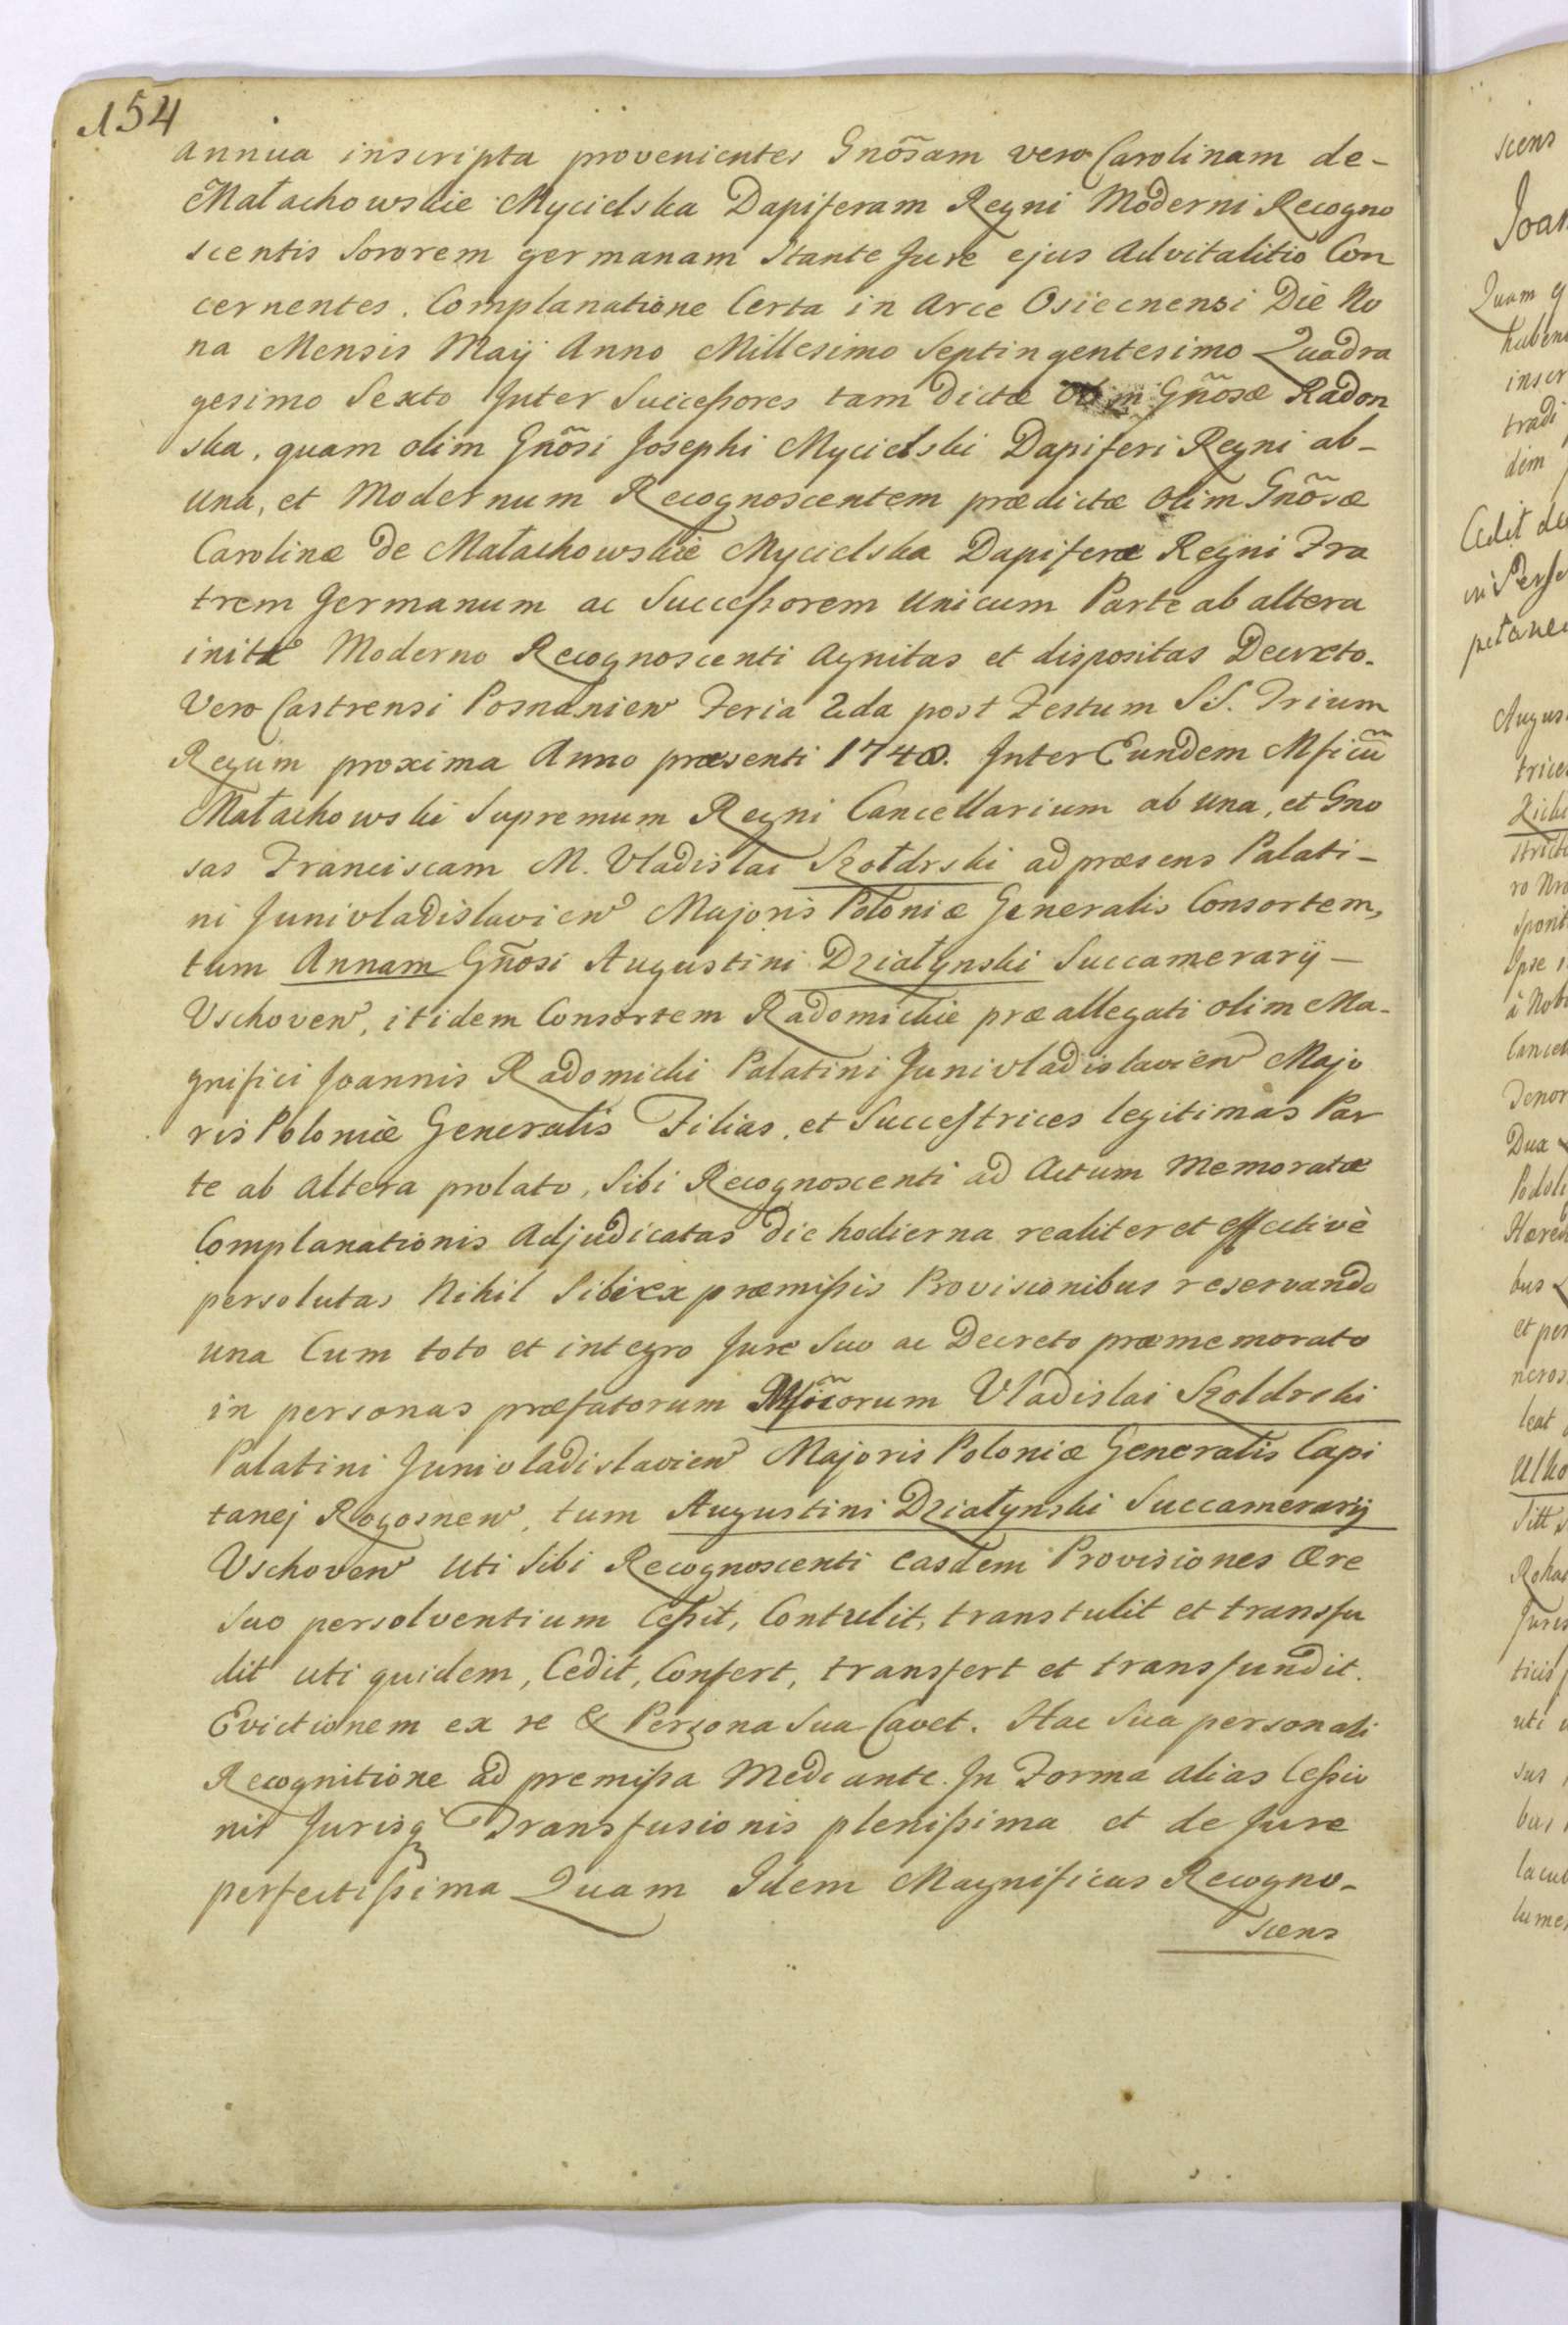 154
annua inscripta provenientes Gnõsam vero Carolinam de-
Małachowskie Mycielska Dapiferam Regni Moderni Recogno
scentis Sororem germanam Stante Jure ejus Advitalitio Con
cernentes. Complanatione Certa in Arce Osiecnensi Die No
na Mensis Maij Anno Millesimo Septingentesimo Quadra
gesimo Sexto Inter Successores tam dictæ olim Gñosæ Radon
ska, quam olim Gnõsi Josephi Mycielski Dapiferi Regni ab-
una, et Modernum Recognoscentem prædictæ olim Gnõsæ
Carolinæ de Małachowskie Mycielska Dapiferæ Regni Fra
trem Germanum ac Successorem Unicum Parte ab altera
inita Moderno Recognoscenti Agnitas et dispositas Decreto.
Vero Castrensi Posnanien Feria 2da post Festum S.S. Trium
Regum proxima Anno præsenti 1748. Inter Eundem Mficũ
Małachowski Supremum Regni Cancellarium ab una, et Gno
sas Franciscam M. Vladislai Szołdrski ad præsens Palati-
ni Junivladislavien Majoris Poloniæ Generalis Consortem,
tum Annam Gñosi Augustini Działynski Succamerarij-
Vschoven, itidem Consortem Radomickie præallegati olim Ma-
gnifici Joannis Radomicki Palatini Junivladislavien Majo
ris Poloniæ Generalis Filias, et Successtrices legitimas Par
te ab altera prolato, Sibi Recognoscenti ad Actum Memoratæ
Complanationis Adjudicatas die hodierna realiter et effectivè
persolutas Nihil Sibi ex præmissis Provisionibus reservando
una Cum toto et integro Jure Suo ac Decreto præmemorato
in personas præfatorum Mficorum Vladislai Szoldrski
Palatini Junivladislavien Majoris Poloniæ Generalis Capi
tanej Rogosnen, tum Augustini Działynski Succamerarij
Vschoven uti Sibi Recognoscenti easdem Provisiones Ære
Suo persolventium Cessit, Contulit, transtulit et transfu
dit uti quidem, Cedit, Confert, transfert et transfundit.
Evictionem ex re & Persona Sua Cavet. Hac Sua personali
Recognitione ad premissa Mediante. In Forma alias Cessio
nis Jurisq Transfusionis plenissima et de Jure
perfectissima Quam Idem Magnificus Recogno-
scens